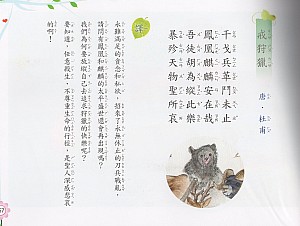 戒狩獵
唐．杜甫
干戈兵革鬥未止
鳳凰麒麟安在哉
吾徒胡為縱此樂
暴殄天物聖所哀
譯
永難滿足的貪念和私欲，招來了永無休止的刀兵戰亂，
請問有鳳凰和麒麟的太平盛世還會再出現嗎？
我們為何要放縱自己去追求狩獵的快樂呢？
要知道，任意殺生，不尊重生命的行徑，是聖人深感悲哀
的啊！